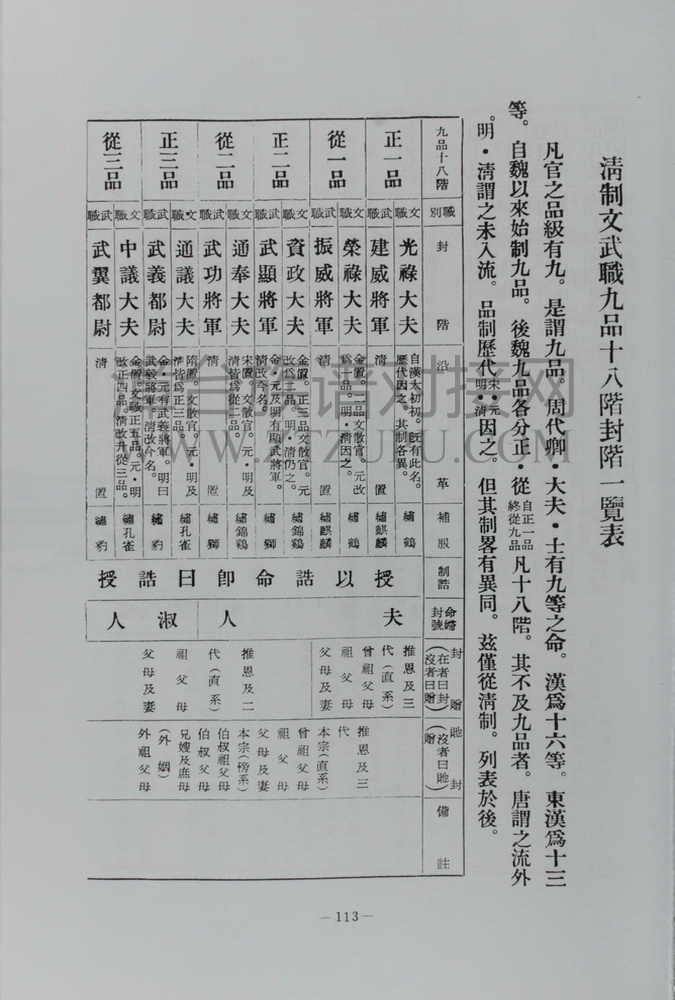 清制文武職九品十八階封階一覽表
凡官之品級有九。是謂九品。周代卿·大夫·士有九等之命。漢爲十六等。東漢爲十三
等。自魏以來始制九品。後魏九品各分正·從自正一品終從九品凡十八階。其不及九品者。唐謂之流外
。明·清謂之未入流。品制歷代宋·元明·清因之。但其制畧有異同。茲僅從清制。列表於後。
九品十八階
職別
封階
沿革
補服
制誥
命婦封號
封贈(在者曰封沒者曰贈)
貤封(沒者曰貤贈)
備註
正一品
文職
光祿大夫
自漢太初初。旣有此名。歷代因之。其制各異。
繡鶴
武職
建威將軍
清置
繡麒麟
從一品
文職
榮祿大夫
金置。一品文散官。元改爲十品。明·清因之。
繡鶴
武職
振威將軍
清置
繡麒麟
正二品
文職
資政大夫
金置。正三品文散官。元改爲二品。明·清仍之。
繡錦鷄
武職
武顯將軍
金·元及明有顯武將軍。清改今名。
繡獅
從二品
文職
通奉大夫
宋置。文散官。元·明及清皆爲從二品
繡錦鷄
武職
武功將軍
清置
繡獅
正三品
文職
通議大夫
隋置。文散官。元·明及清皆爲正三品。
繡孔雀
武職
武義都尉
金·元有武義將軍。明曰武毅將軍。清改今名。
繡豹
從三品
文職
中議大夫
金置。文散正五品。元·明改正四品。清改升從三品。
繡孔雀
武職
武翼都尉
清置
繡豹
授以誥命卽曰誥授
夫人
淑人
推恩及三
代(直系)
曾祖父母
祖父母
父母及妻
推恩及二
代(直系)
祖父母
父母及妻
推恩及三
代
本宗(直系)
曾祖父母
祖父母
父母及妻
本宗(榜系)
伯叔祖父母
伯叔父母
兄嫂及庶母
(外姻)
外祖父母
—113—
WWW.ZTZUPU.COM